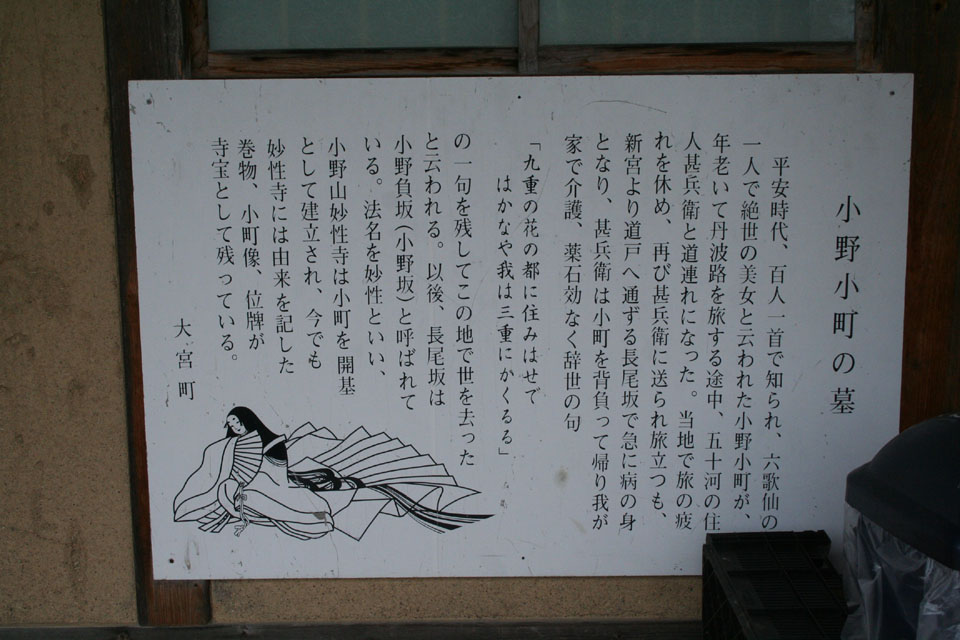 小野小町の墓
平安時代、百人一首で知られ、六歌仙の
一人で絶世の美女と云われた小野小町が、
年老いて丹波路を旅する途中、五十河の住
人甚兵衛と道連れになった。当地で旅の疲
れを休め、再び甚兵衛に送られ旅立つも、
新宮より道戸へ通ずる長尾坂で急に病の身
となり、甚兵衛は小町を背負って帰り我が
家で介護、薬石効なく辞世の句
「九重の花の都に住みはせで
はかなや我は三重にかくるる」
の一句を残してこの地で世を去った
と云われる。以後、長尾坂は
小野負坂(小野坂)と呼ばれて
いる。法名を妙性といい、
小野山妙性寺は小町を開基
として建立され、今でも
妙性寺には由来を記した
巻物、小町像、位牌が
寺宝として残っている。
大宮町